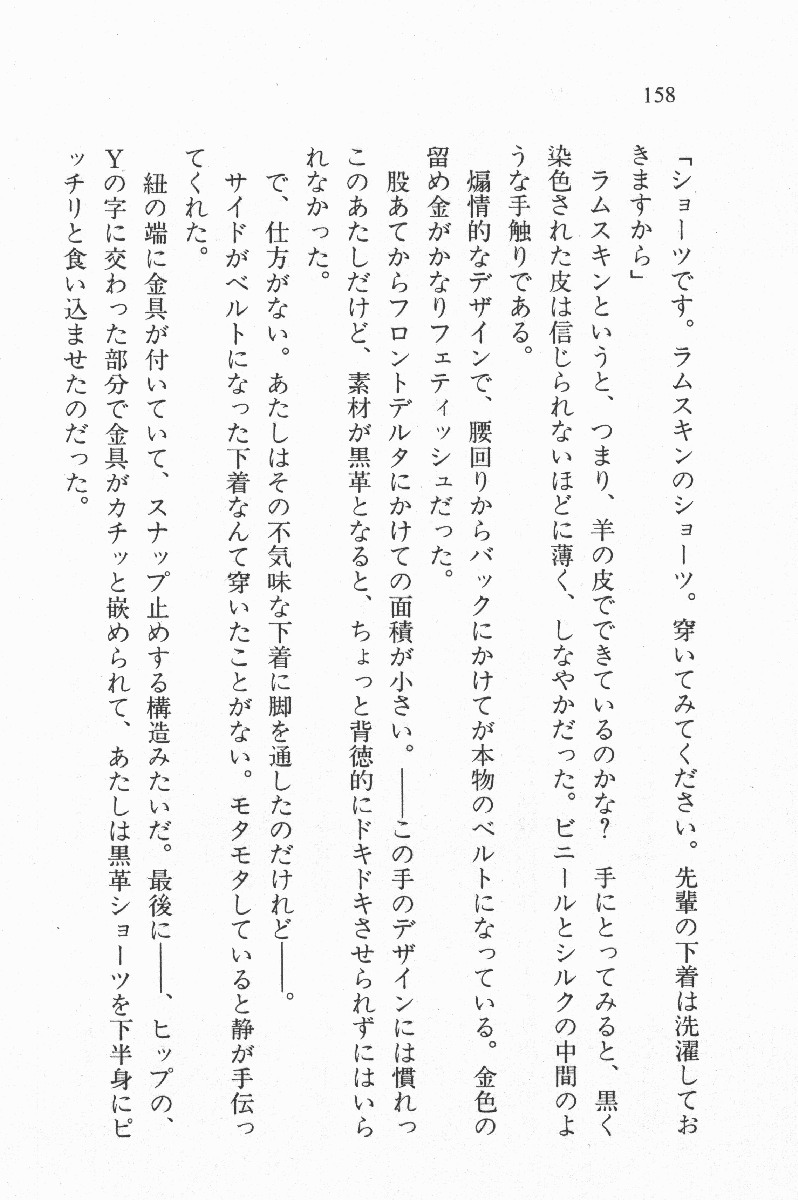 158
「ショーツです。ラムスキンのショーツ。穿いてみてください。先輩の下着は洗濯してお
きますから」
ラムスキンというと、つまり、羊の皮でできているのかな？　手にとってみると、黒く
染色された皮は信じられないほどに薄く、しなやかだった。ビニールとシルクの中間のよ
うな手触りである。
煽情的なデザインで、腰回りからバックにかけてが本物のベルトになっている。金色の
留め金がかなりフェティッシュだった。
股あてからフロントデルタにかけての面積が小さい。――この手のデザインには慣れっ
このあたしだけど、素材が黒革となると、ちょっと背徳的にドキドキさせられずにはいら
れなかった。
で、仕方がない。あたしはその不気味な下着に脚を通したのだけれど――。
サイドがベルトになった下着なんて穿いたことがない。モタモタしていると静が手伝っ
てくれた。
紐の端に金具が付いていて、スナップ止めする構造みたいだ。最後に――、ヒップの、
Ｙの字に交わった部分で金具がカチッと嵌められて、あたしは黒革ショーツを下半身にピ
ッチリと食い込ませたのだった。